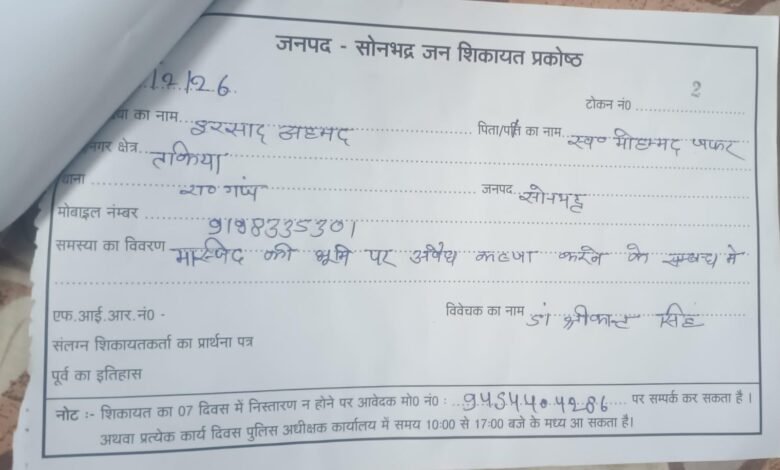 जनपद - सोनभद्र जन शिकायत प्रकोष्ठ
/2/26.
2
टोकन नं0
का नाम इरसाद अहमद पिता/पति का नाम स्व० मोहम्मद जफर
नगर क्षेत्र. तकिया
थाना रा० गंज जनपद सोनभद्र
मोबाइल नम्बर 9198335301
समस्या का विवरण मस्जिद की भूमि पर अवैध कब्जा करने के सम्बंध में
एफ.आई.आर.नं0 - विवेचक का नाम डॉ श्रीकान्त सिंह
संलग्न शिकायतकर्ता का प्रार्थना पत्र
पूर्व का इतिहास
नोट :- शिकायत का 07 दिवस में निस्तारण न होने पर आवेदक मो0 नं0 : 9454404286 पर सम्पर्क कर सकता है।
अथवा प्रत्येक कार्य दिवस पुलिस अधीक्षक कार्यालय में समय 10:00 से 17:00 बजे के मध्य आ सकता है।